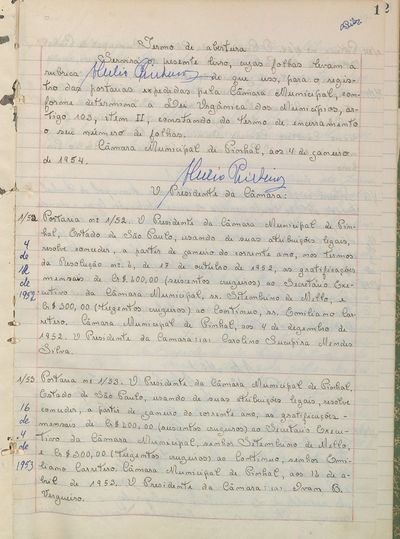 12
Termo de abertura
Servirá o presente livro, cujas folhas levam a
rubrica de que uso, para o regis-
tro das portarias expedidas pela Câmara Municipal, con-
forme determina a Lei Orgânica dos Municípios, ar-
tigo 103, item II, constando do termo de encerramento
o seu número de folhas.
Câmara Municipal de Pinhal, aos 4 de janeiro
de 1954.
O Presidente da Câmara:
1/52 Portaria nº 1/52. O Presidente da Câmara Municipal de Pi-
nhal, Estado de São Paulo, usando de suas atribuições legais,
resolve conceder, a partir de janeiro do corrente ano, nos termos
da Resolução nº 2, de 17 de outubro de 1952, as gratificações
mensais de Cr$ 600,00 (seiscentos cruzeiros) ao Secretário Exe-
cutivo da Câmara Municipal, sr. Setembrino de Mello, e
Cr$ 300,00 (trezentos cruzeiros) ao Contínuo, sr. Emiliano Car-
retero. Câmara Municipal de Pinhal, aos 4 de dezembro de
1952. O Presidente da Câmara: (a) Carolino Mendes
Silva.
4
de
12
de
1952
1/53 Portaria nº 1/53. O Presidente da Câmara Municipal de Pinhal,
Estado de São Paulo, usando de suas atribuições legais, resolve
conceder, a partir de janeiro do corrente ano, as gratificações
mensais de Cr$ 600,00 (seiscentos cruzeiros) ao Secretário Execu-
tivo da Câmara Municipal, senhor Setembrino de Mello,
e Cr$ 300,00 (trezentos cruzeiros) ao Contínuo, senhor Emi-
liano Carretero. Câmara Municipal de Pinhal, aos 16 de a-
bril de 1953. O Presidente da Câmara: (a) Ivan B.
Vergueiro.
16
de
4
de
1953